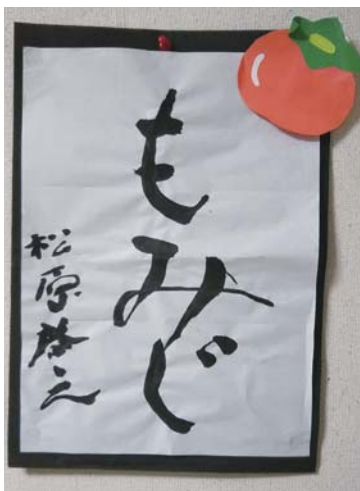 もみじ
松原勝之